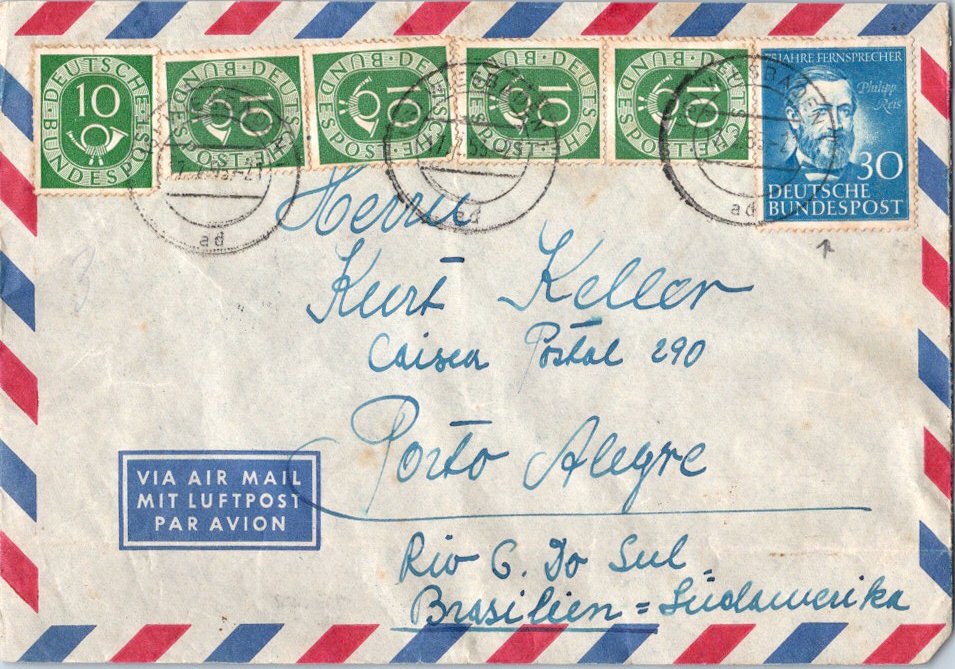 DEUTSCHE BUNDESPOST 10
DEUTSCHE BUNDESPOST 10
DEUTSCHE BUNDESPOST 10
DEUTSCHE BUNDESPOST 10
DEUTSCHE BUNDESPOST 10
75 JAHRE FERNSPRECHER
Philipp
Reis
30
DEUTSCHE
BUNDESPOST
WIESBADEN
ad
WIESBADEN
ad
WIESBADEN
ad
Herrn
Kurt Keller
Caixa Postal 290
Porto Alegre
Rio G. Do Sul
Brasilien = Südamerika
VIA AIR MAIL
MIT LUFTPOST
PAR AVION
3